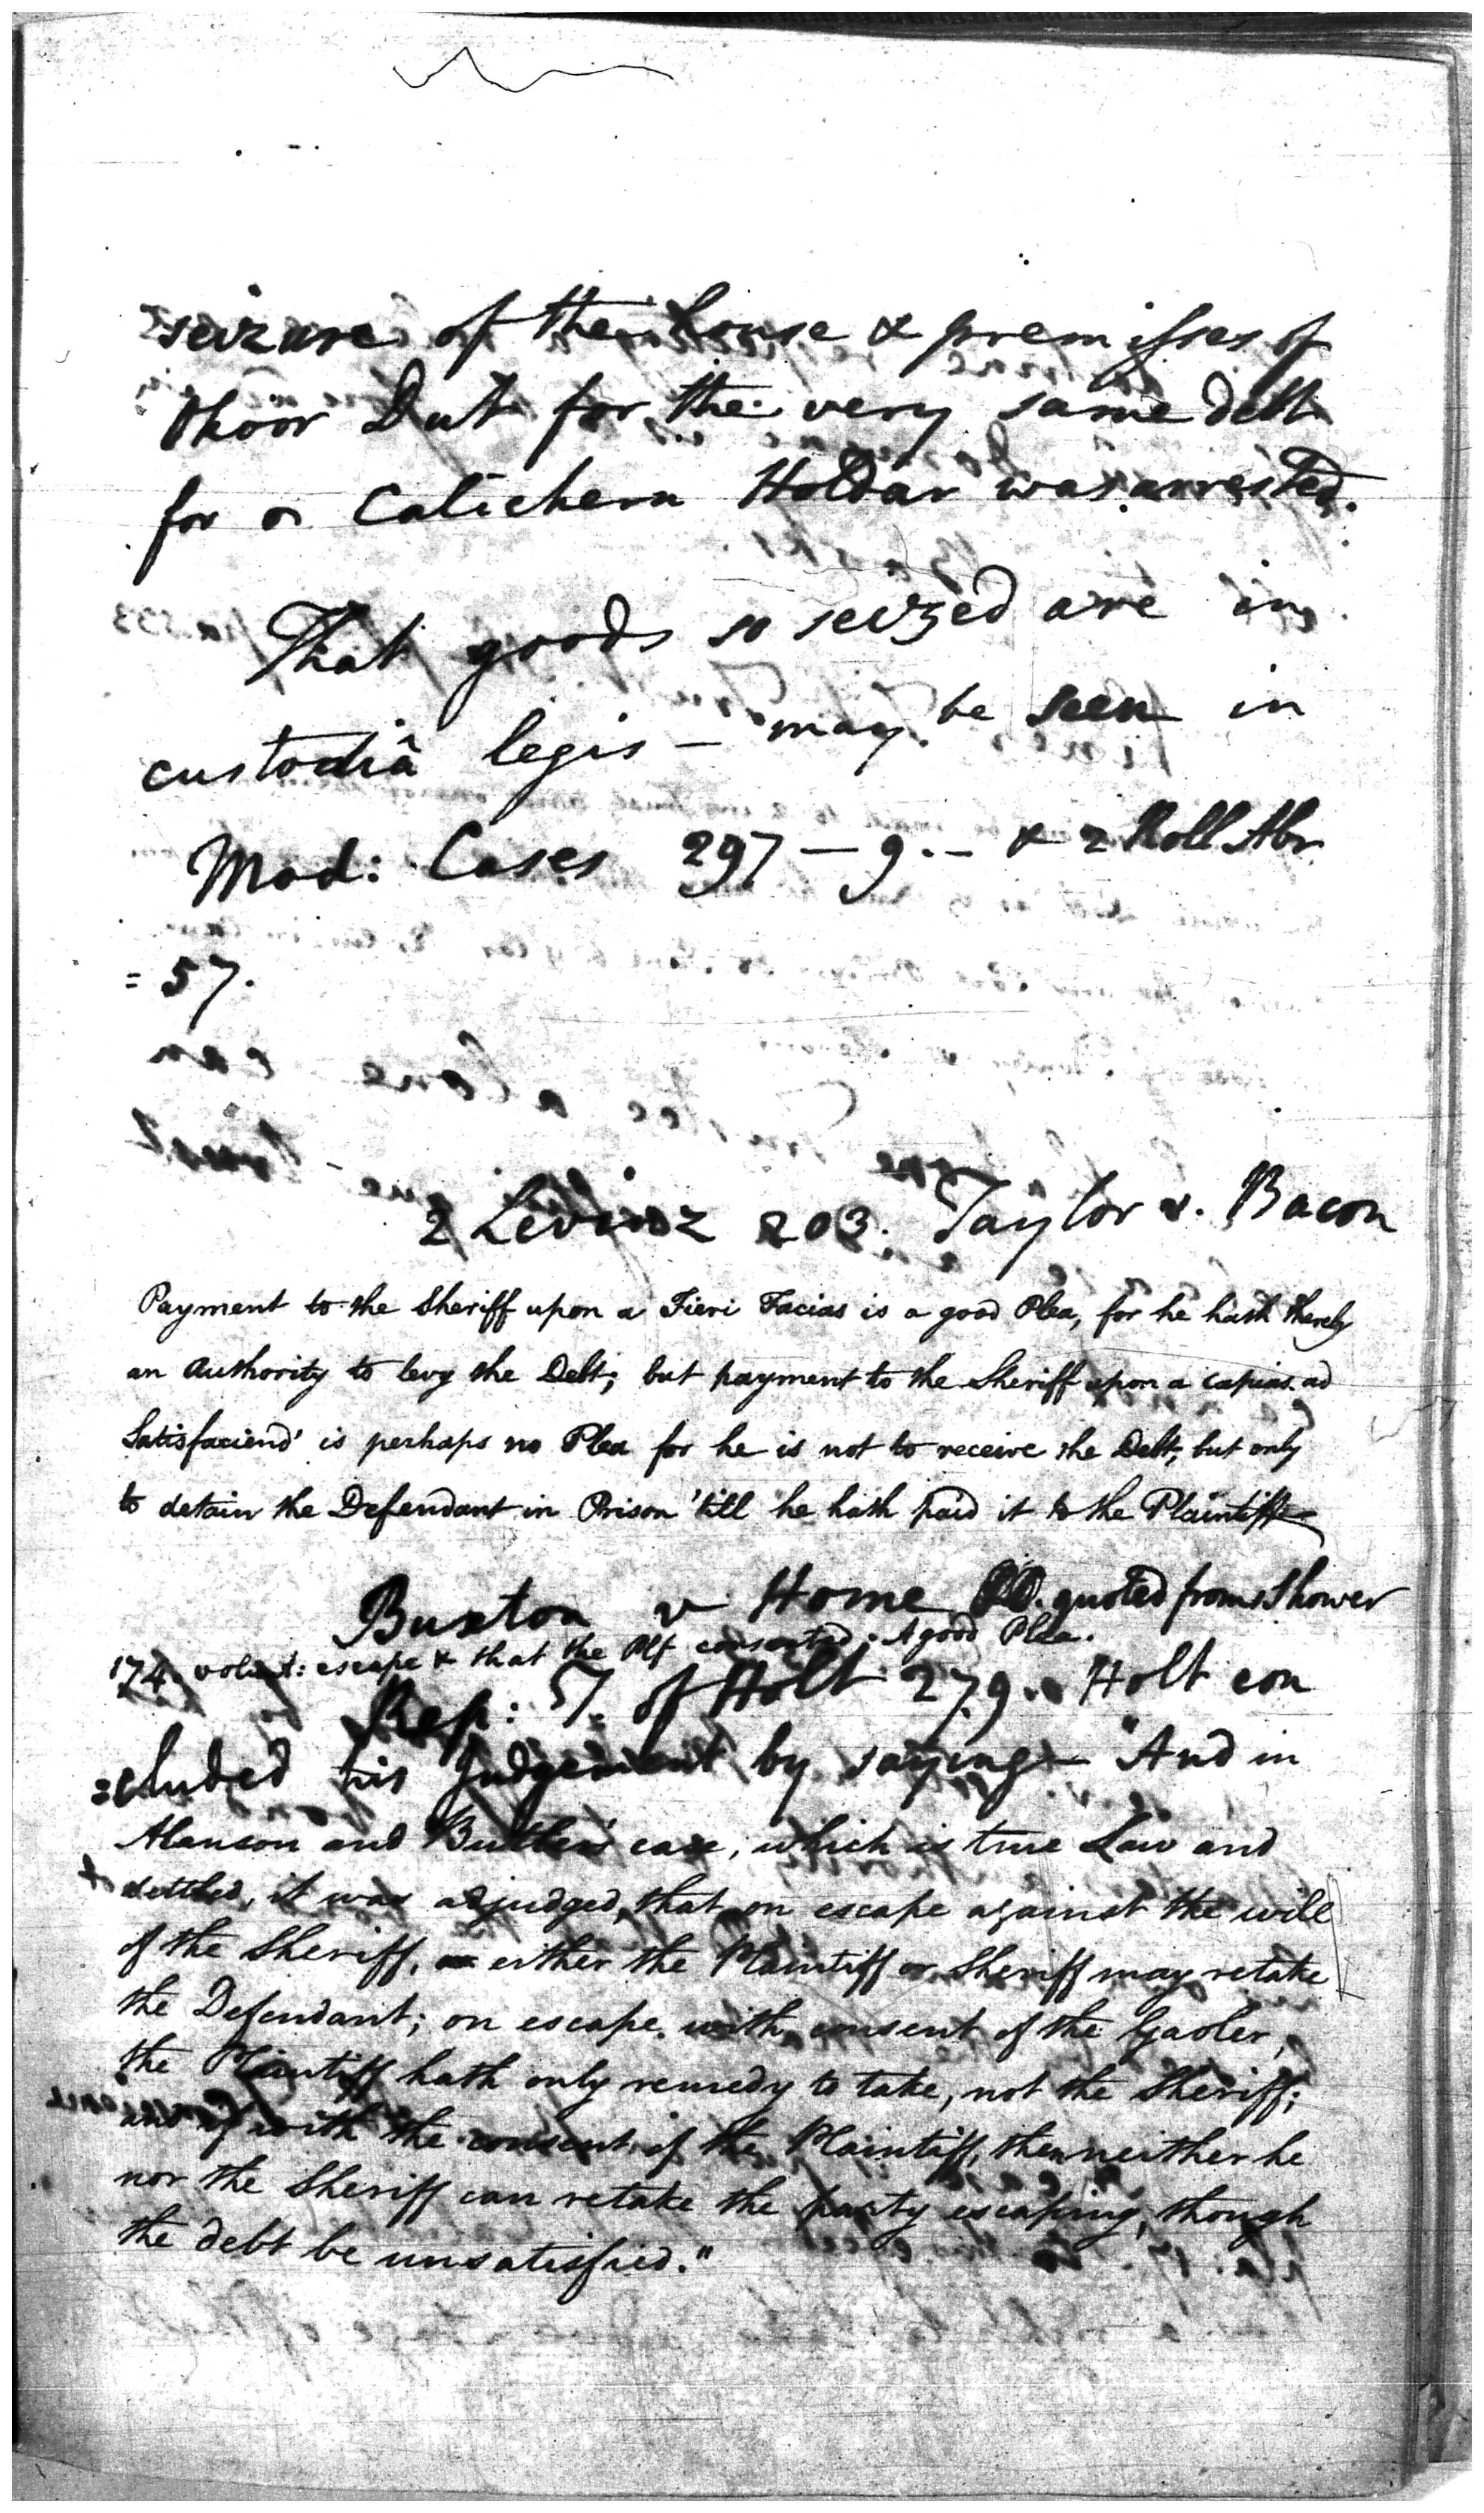 seizure of the house & premisses of
Choor Dut for the very same debt
for o Catichern Holdar was arrested.
That goods so seized are in
custodiâ legis – may be seen in
Mod: Cases 297 – 9. – & 2 Roll Abr
= 57.
2 Levinz 203. Taylor v. Bacon
Payment to the Sheriff upon a Fieri Facias is a good Plea, for he hath thereby
an Authority to levy the Debt; but payment to the Sheriff upon a capias ad
Satisfaciend' is perhaps no Plea for he is not to receive the Debt, but only
to detain the Defendant in Prison 'till he hath paid it to the Plaintiff
Buxton v Home quoted from Shower
174. volunt: escape & that the Plf consented. A good Plea.
Rep: T. of Holt 279. Holt con
=cluded his Judgement by saying – "And in
Alanson and Butler's case, which is true Law and
settled, it was adjudged, that on escape against the will
of the Sheriff, either the Plaintiff or Sheriff may retake
the Defendant; on escape with consent of the Gaoler,
the Plaintiff hath only remedy to take, not the Sheriff;
and if with the consent of the Plaintiff, then neither he
nor the Sheriff can retake the party escaping, though
the debt be unsatisfied."